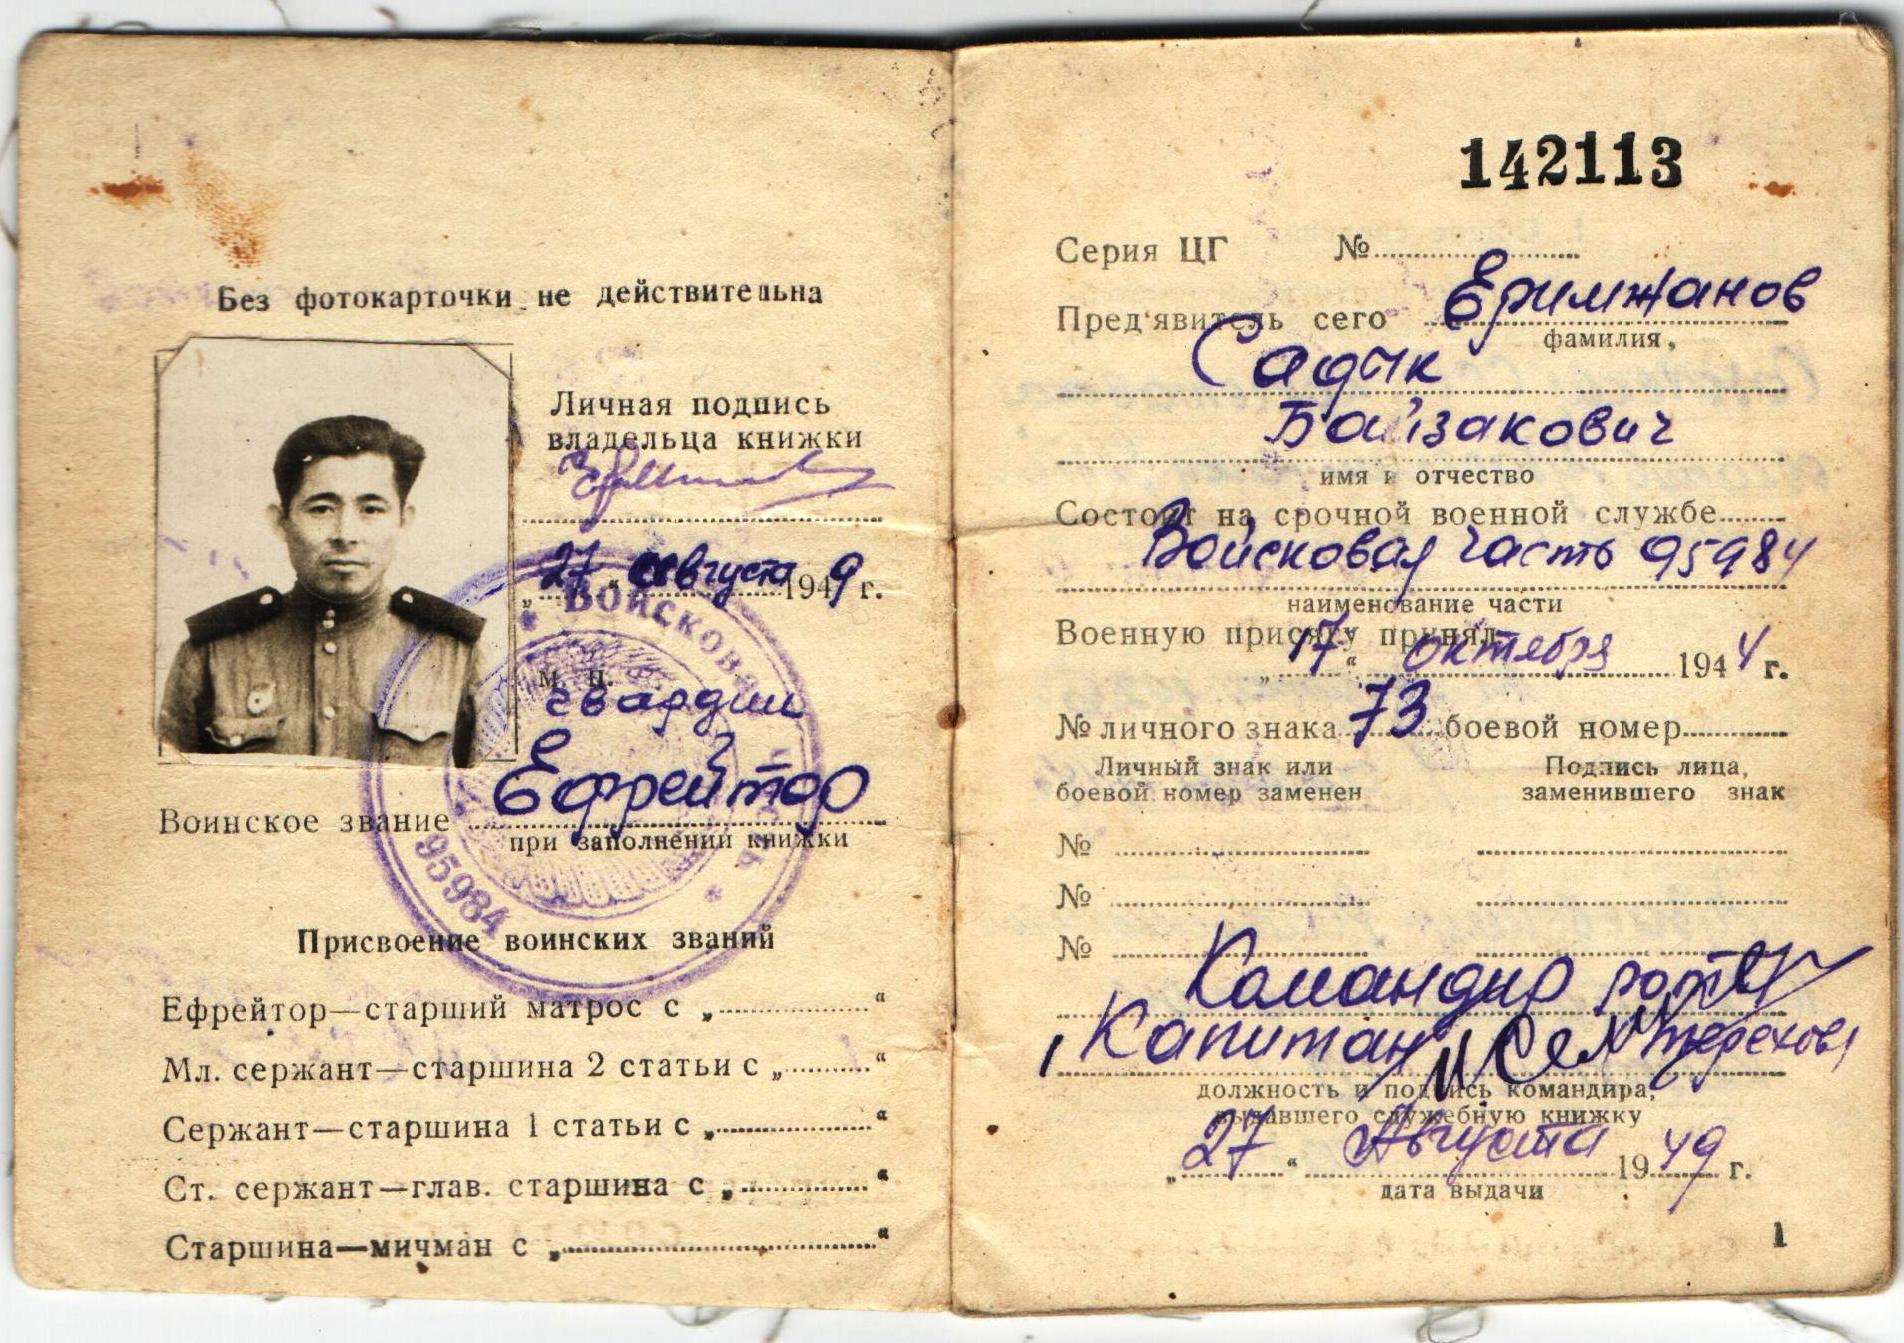 Без фотокарточки не действительна
Личная подпись
владельца книжки
„27" августа 1949 г.
Войсковая часть
95984
м. п.
гвардии
Воинское звание Ефрейтор
при заполнении книжки
Присвоение воинских званий
Ефрейтор—старший матрос с „ "
Мл. сержант—старшина 2 статьи с „ "
Сержант—старшина 1 статьи с „ "
Ст. сержант—глав. старшина с „ "
Старшина—мичман с „ "
142113
Серия ЦГ №
Пред'явитель сего Еримжанов
фамилия,
Садык
Байзакович
имя и отчество
Состоит на срочной военной службе
Войсковая часть 95984
наименование части
Военную присягу принял
„17" октября 1944 г.
№ личного знака 73 боевой номер
Личный знак или Подпись лица,
боевой номер заменен заменившего знак
№
№
№
Командир роты
Капитан
должность и подпись командира,
выдавшего служебную книжку
„27" Августа 1949 г.
дата выдачи
1